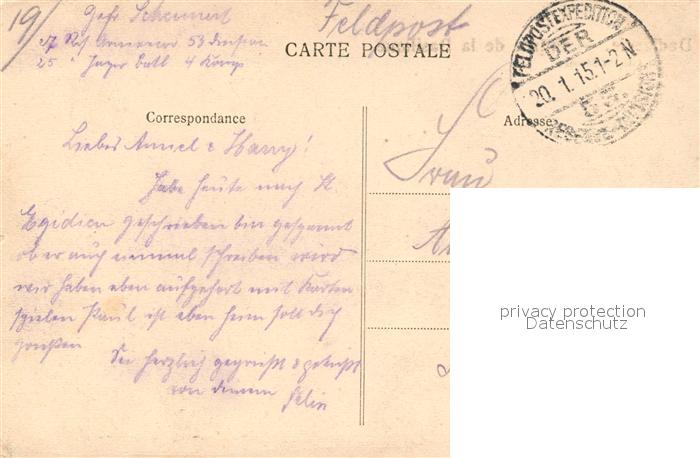 19/
Gefr Scheunert
27 Res 53 Division
25 Jäger Batl 4 Komp
Feldpost
CARTE POSTALE
FELDPOSTEXPEDITION
DER
20. 1. 15. 1-2 N
53.
RESERVE-DIVISION
Correspondance
Adresse
Liebes Annel & Harry!
Habe heute nach St.
Egidien geschrieben bin gespannt
ob er auch einmal schreiben wird
wir haben eben aufgehört mit Karten
spielen Paul ist eben heim soll dich
grüßen
Sei herzlich gegrüßt & geküßt
von deinem
Felix
Frau
privacy protection
Datenschutz